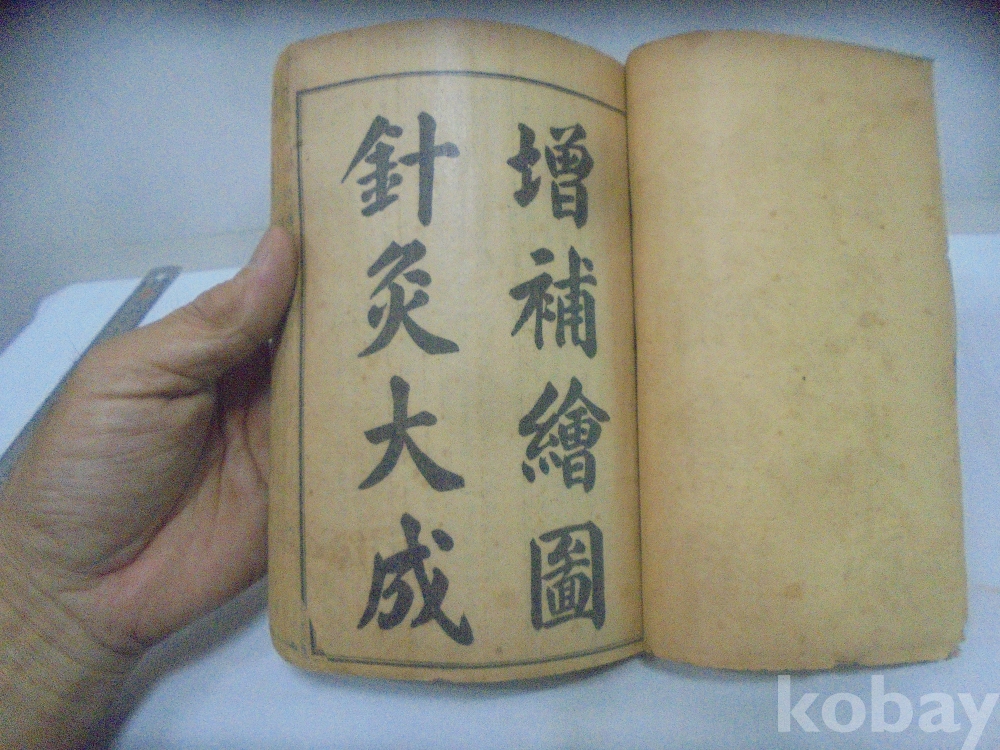 增補繪圖
針灸大成
kobay